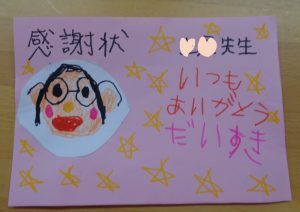 感謝状
先生
いつも
ありがとう
だいすき